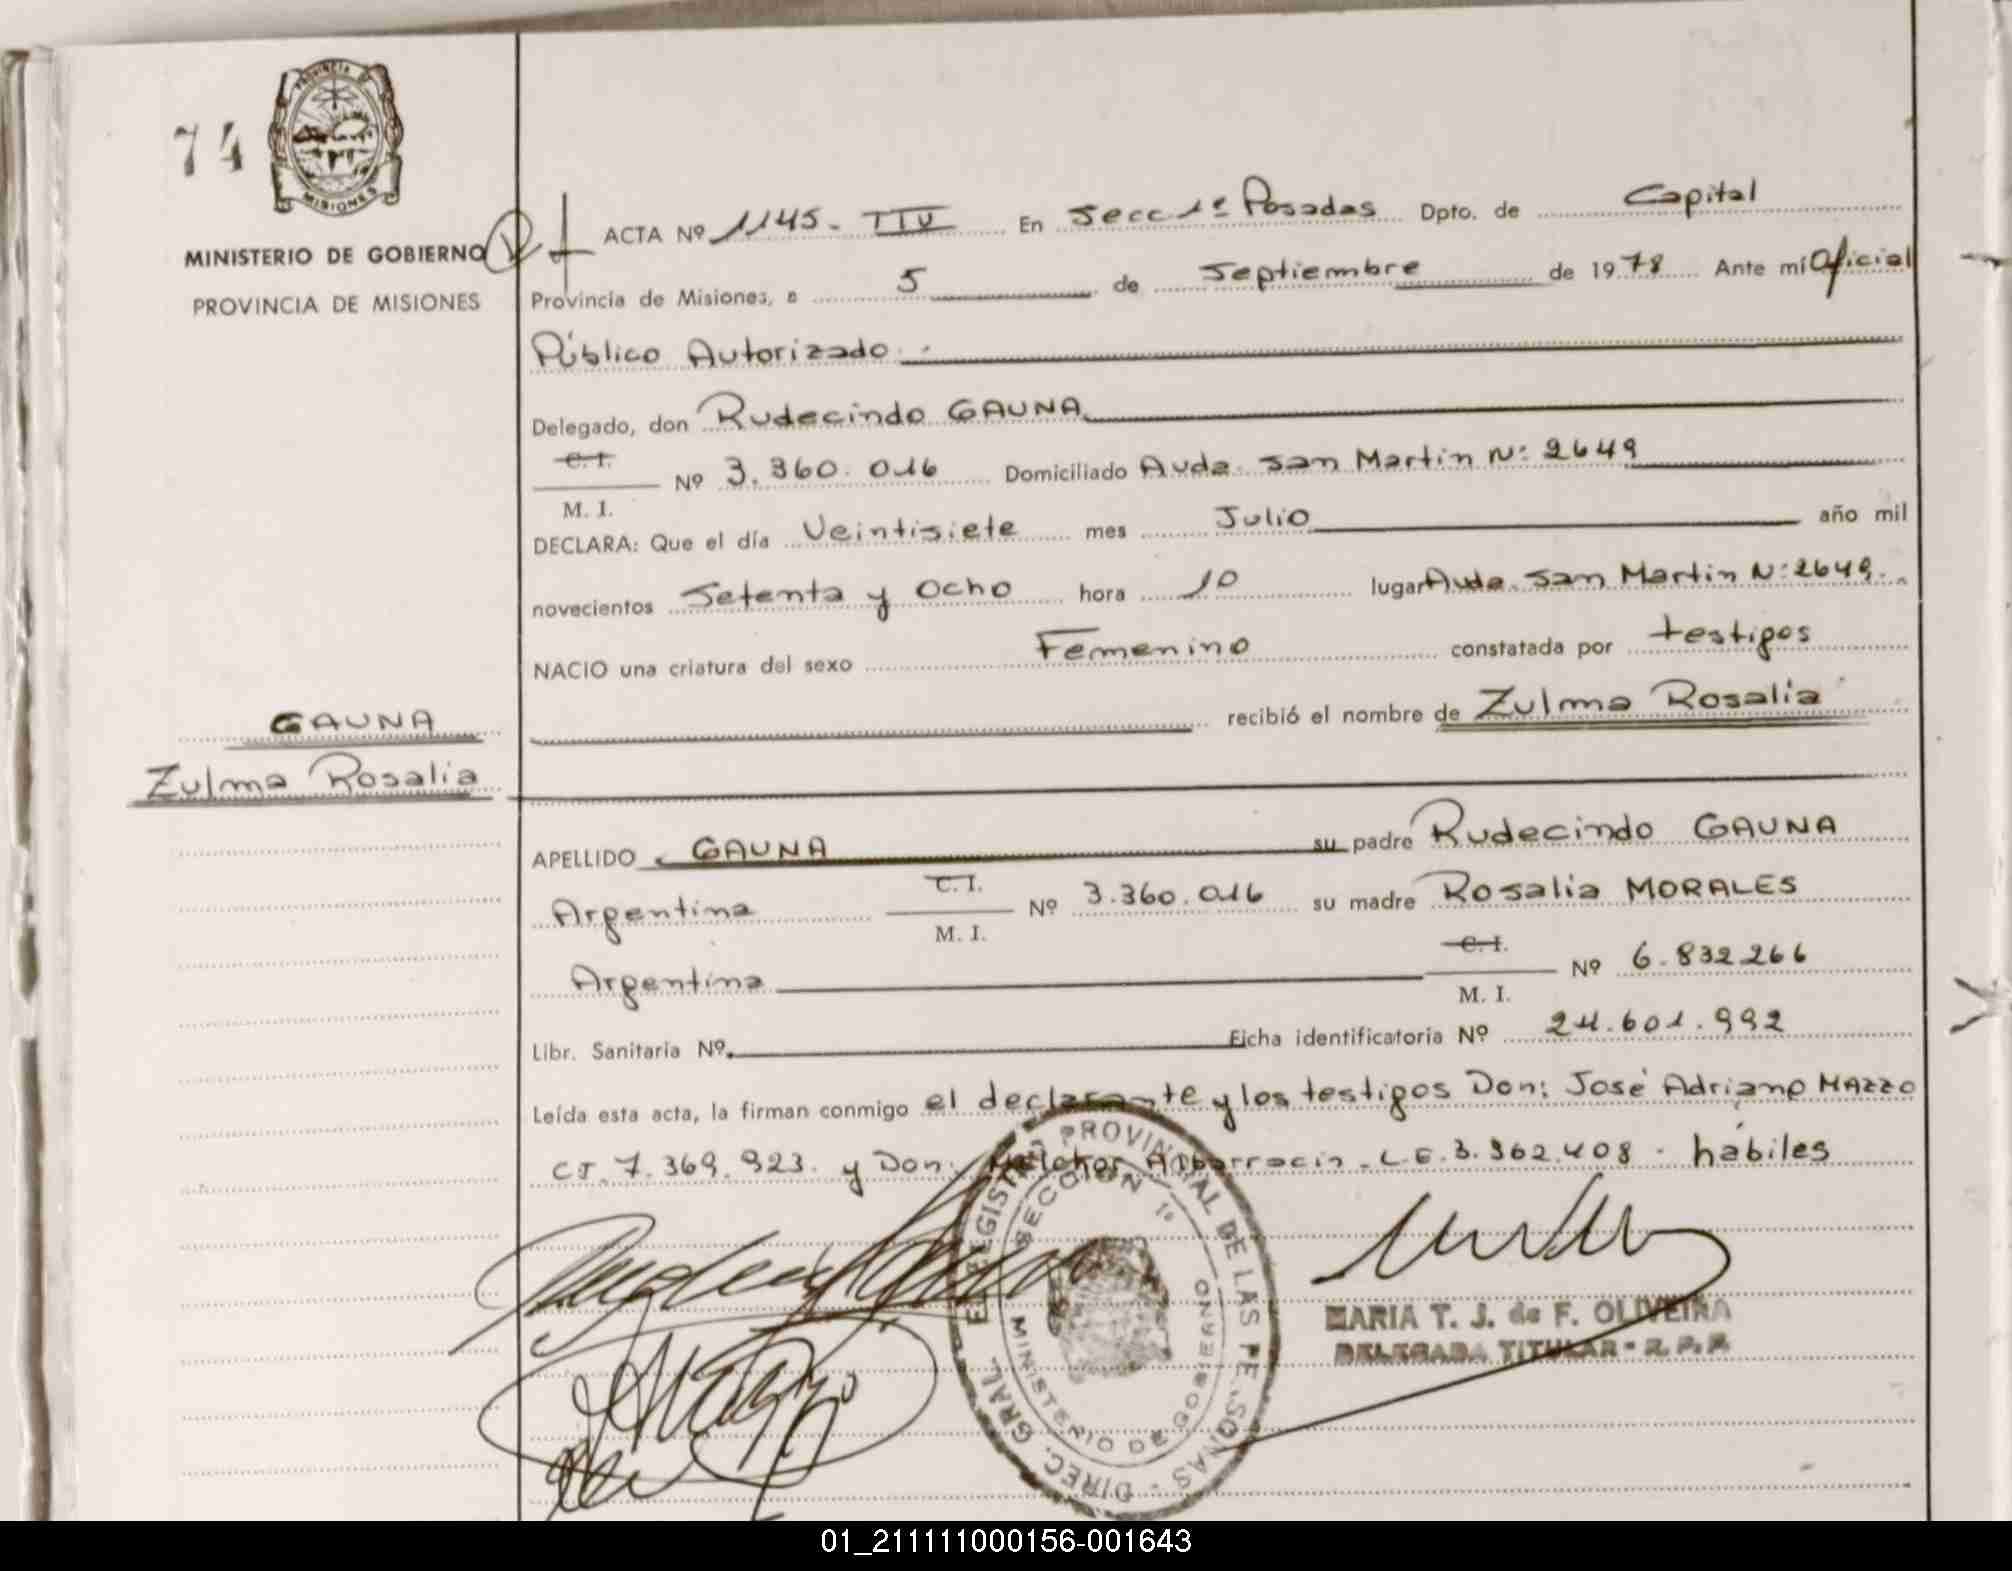 PROVINCIA DE
MISIONES
74
MINISTERIO DE GOBIERNO
PROVINCIA DE MISIONES
ACTA Nº 1145 - TIV En Secc 1º Posadas Dpto. de Capital
Provincia de Misiones, a 5 de Septiembre de 1978 Ante mí Oficial
Público Autorizado.
Delegado, don Rudecindo GAUNA
C. I.
M. I. Nº 3.360.016 Domiciliado Avda. San Martin Nº 2649
DECLARA: Que el día Veintisiete mes Julio año mil
novecientos Setenta y Ocho hora 10 lugar Avda. San Martin Nº 2649.
NACIO una criatura del sexo Femenino constatada por testigos
recibió el nombre de Zulma Rosalia
GAUNA
Zulma Rosalia
APELLIDO GAUNA su padre Rudecindo GAUNA
Argentina C. I. M. I. Nº 3.360.016 su madre Rosalia MORALES
Argentina C. I. M. I. Nº 6.832.266
Libr. Sanitaria Nº. Ficha identificatoria Nº 24.601.992
Leída esta acta, la firman conmigo el declarante y los testigos Don: José Adriano MAZZO
CI. 7.369.923. y Don: Melchor Albarracin - L.E. 3.362.408 - hábiles
DIREC. GRAL. REGISTRO PROVINCIAL DE LAS PERSONAS
SECCION 1º
MINISTERIO DE GOBIERNO
MARIA T. J. de F. OLIVEIRA
DELEGADA TITULAR - R. P. P.
01_211111000156-001643